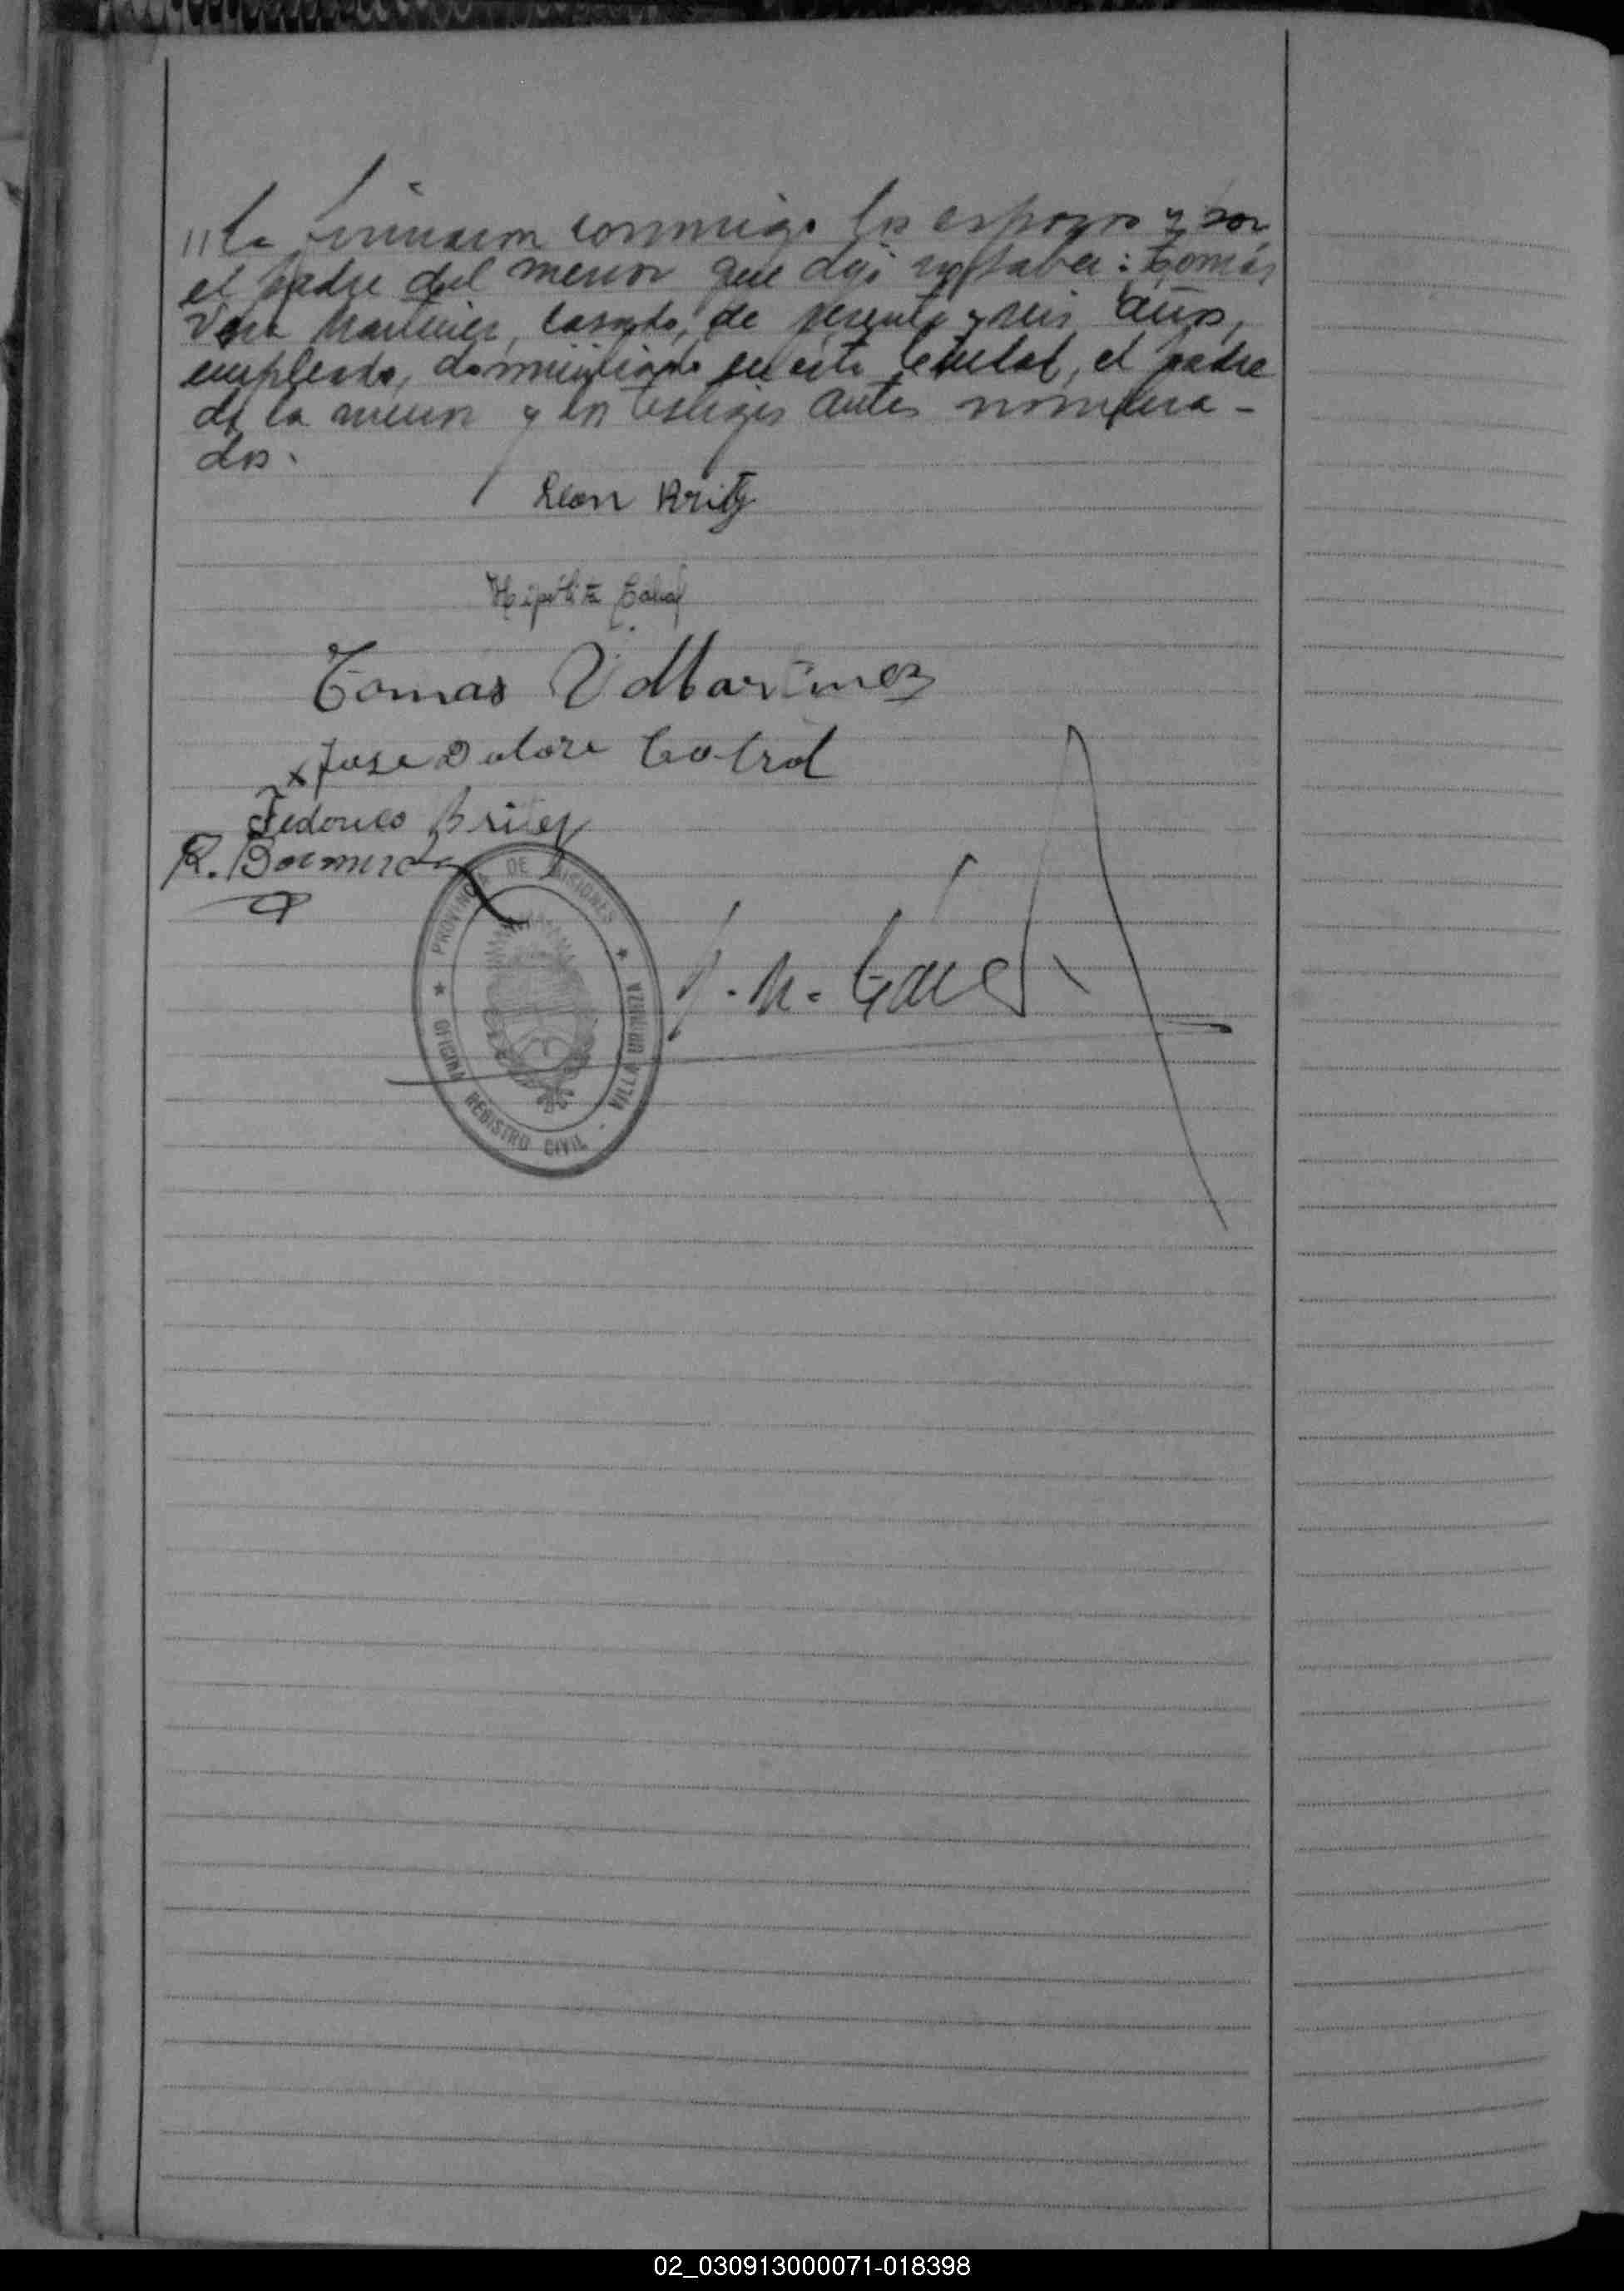 "la firmaron conmigo los esposos y por
el padre del menor que dijo : Tomás
Vera Martinez, casado, de sesenta y seis años,
empleado, domiciliado en esta Ciudad, el padre
de la menor y los testigos antes nombra-
dos.
León Britz
Hipólita
Tomas V Martinez
x Jose Dolore
Federico Britez
R.
PROVINCIA DE MISIONES
OFICINA REGISTRO CIVIL - VILLA URQUIZA
02_030913000071-018398